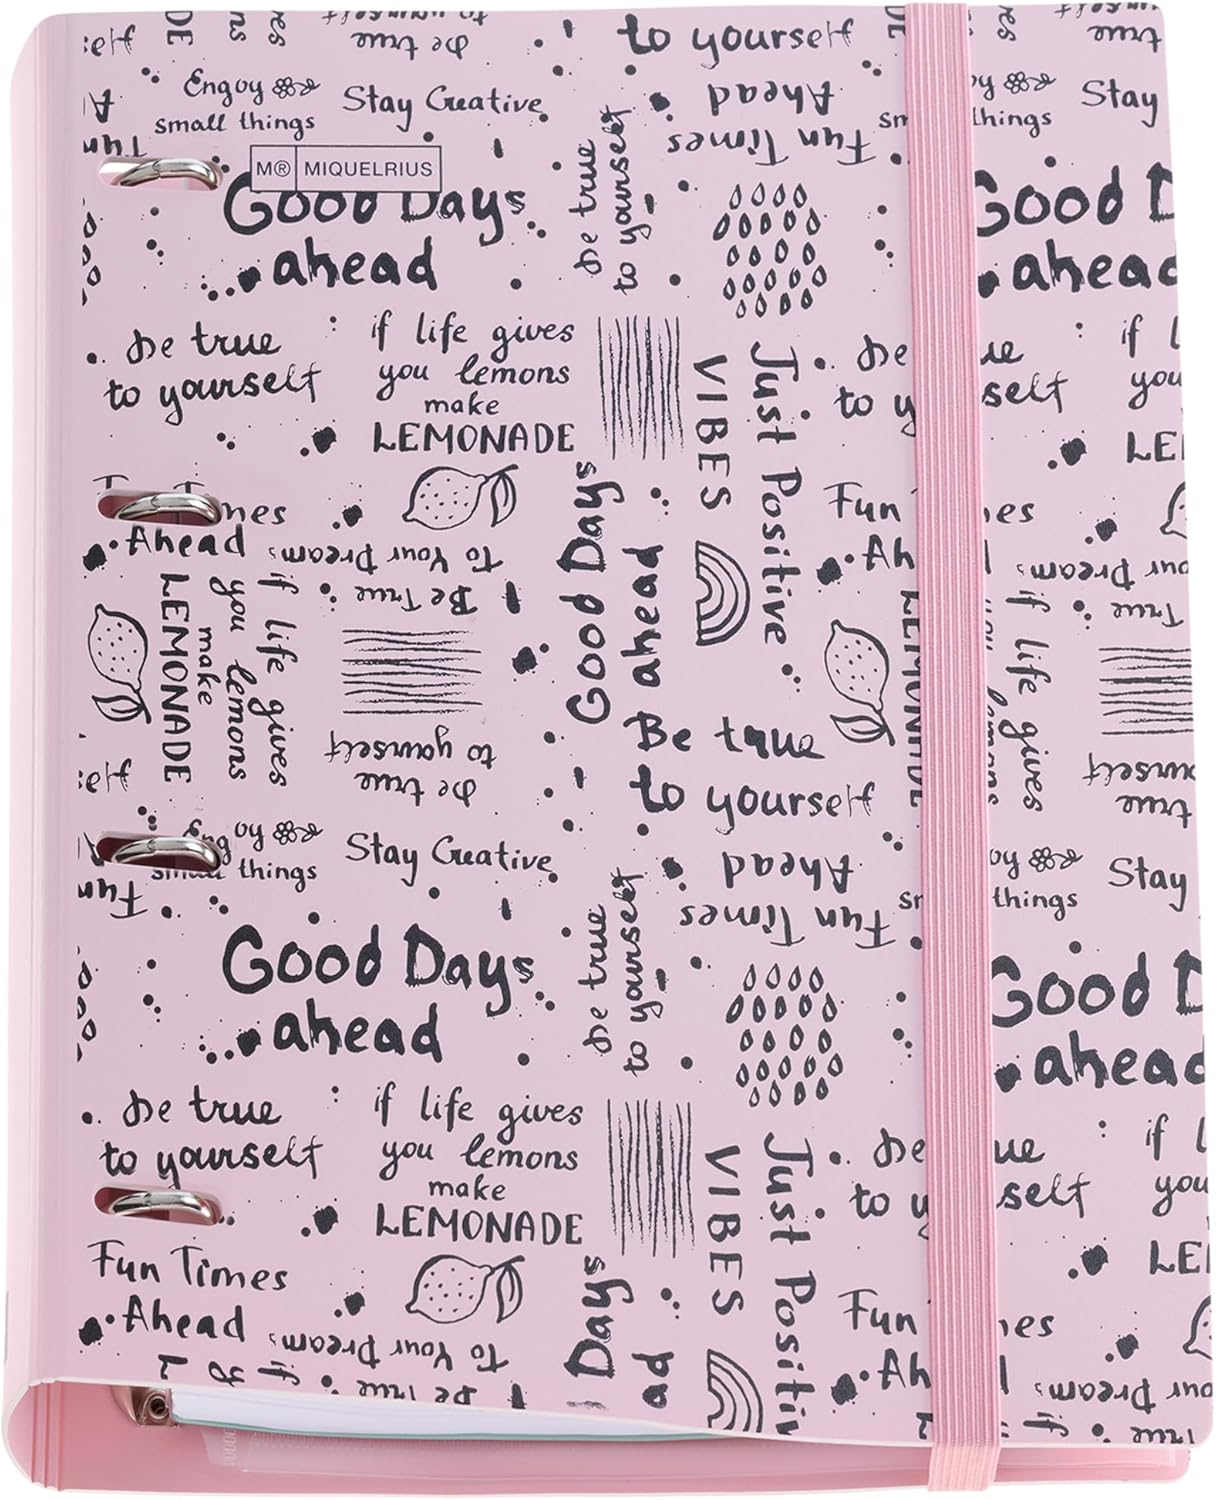 to yourself
be true
Engoy
small things
Stay Creative
Ahead
Fun Times
Stay
small things
M® MIQUELRIUS
Good Days
ahead
be true
to yourself
Good D
ahead
be true
to yourself
if life gives
you lemons
make
LEMONADE
Just Positive
VIBES
be true
to yourself
if l
you
LE
Fun Times
Ahead
Be True
To Your Dreams
Good Days
ahead
Fun
Ah
if life gives
you lemons
make
LEMONADE
be true
to yourself
Be true
to yourself
if life gives
lemons
LEMONADE
be true
yourself
Engoy
small things
Stay Creative
Fun Times
Ahead
things
Stay
Good Days
ahead
be true
to yourself
Good D
ahead
be true
to yourself
if life gives
you lemons
make
LEMONADE
Just Positive
VIBES
be true
to yourself
if l
you
LE
Fun Times
Ahead
Be True
To Your Dreams
Days
Fun
Ah